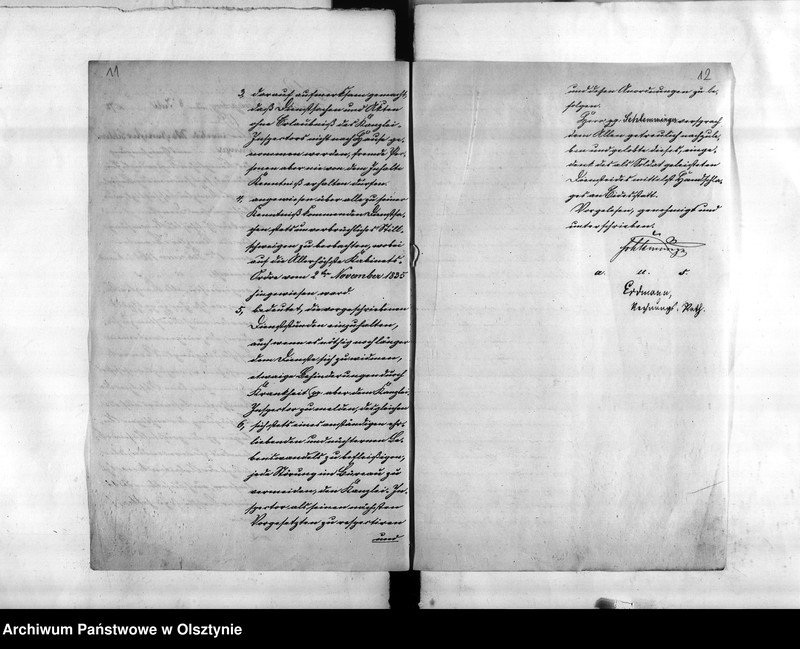 11
3, darauf aufmerksam gemacht,
daß Dienstsachen und Akten
ohne Erlaubniß des Kanzlei-
Inspectors nicht nach Hause ge-
nommen werden, fremde Per-
sonen aber nie von dem Inhalte
Kenntniß erhalten dürfen.
4, angewiesen über alle zu seiner
Kenntniß kommenden Dienstsa-
chen stets unverbrüchliches Still-
schweigen zu beobachten, wobei
auf die Allerhöchste Kabinets-
Ordre vom 2ten November 1835
hingewiesen ward.
5, bedeutet, die vorgeschriebenen
Dienststunden einzuhalten,
auch wenn es nöthig noch länger
dem Dienste sich zu widmen,
etwaige Behinderungen durch
Krankheit pp aber dem Kanzlei-
Inspector zu melden, desgleichen
6, sich stets eines anständigen ehr-
liebenden und nüchternen Le-
benswandels zu befleißigen,
jede Störung im Büreau zu
vermeiden, den Kanzlei-In-
spector als seinen nächsten
Vorgesetzten zu respectiren
und
12
und dessen Anordnungen zu be-
folgen.
Herr pp. versprach
dem Allen getreulich nachzule-
ben und gelobte dieses, einge-
denk des als Soldat geleisteten
Diensteides mittelst Handschla-
ges an Eidesstatt.
Vorgelesen, genehmigt und
unterschrieben.
a. u. s.
Erdmann,
Rechnungs-Rath.
Archiwum Państwowe w Olsztynie